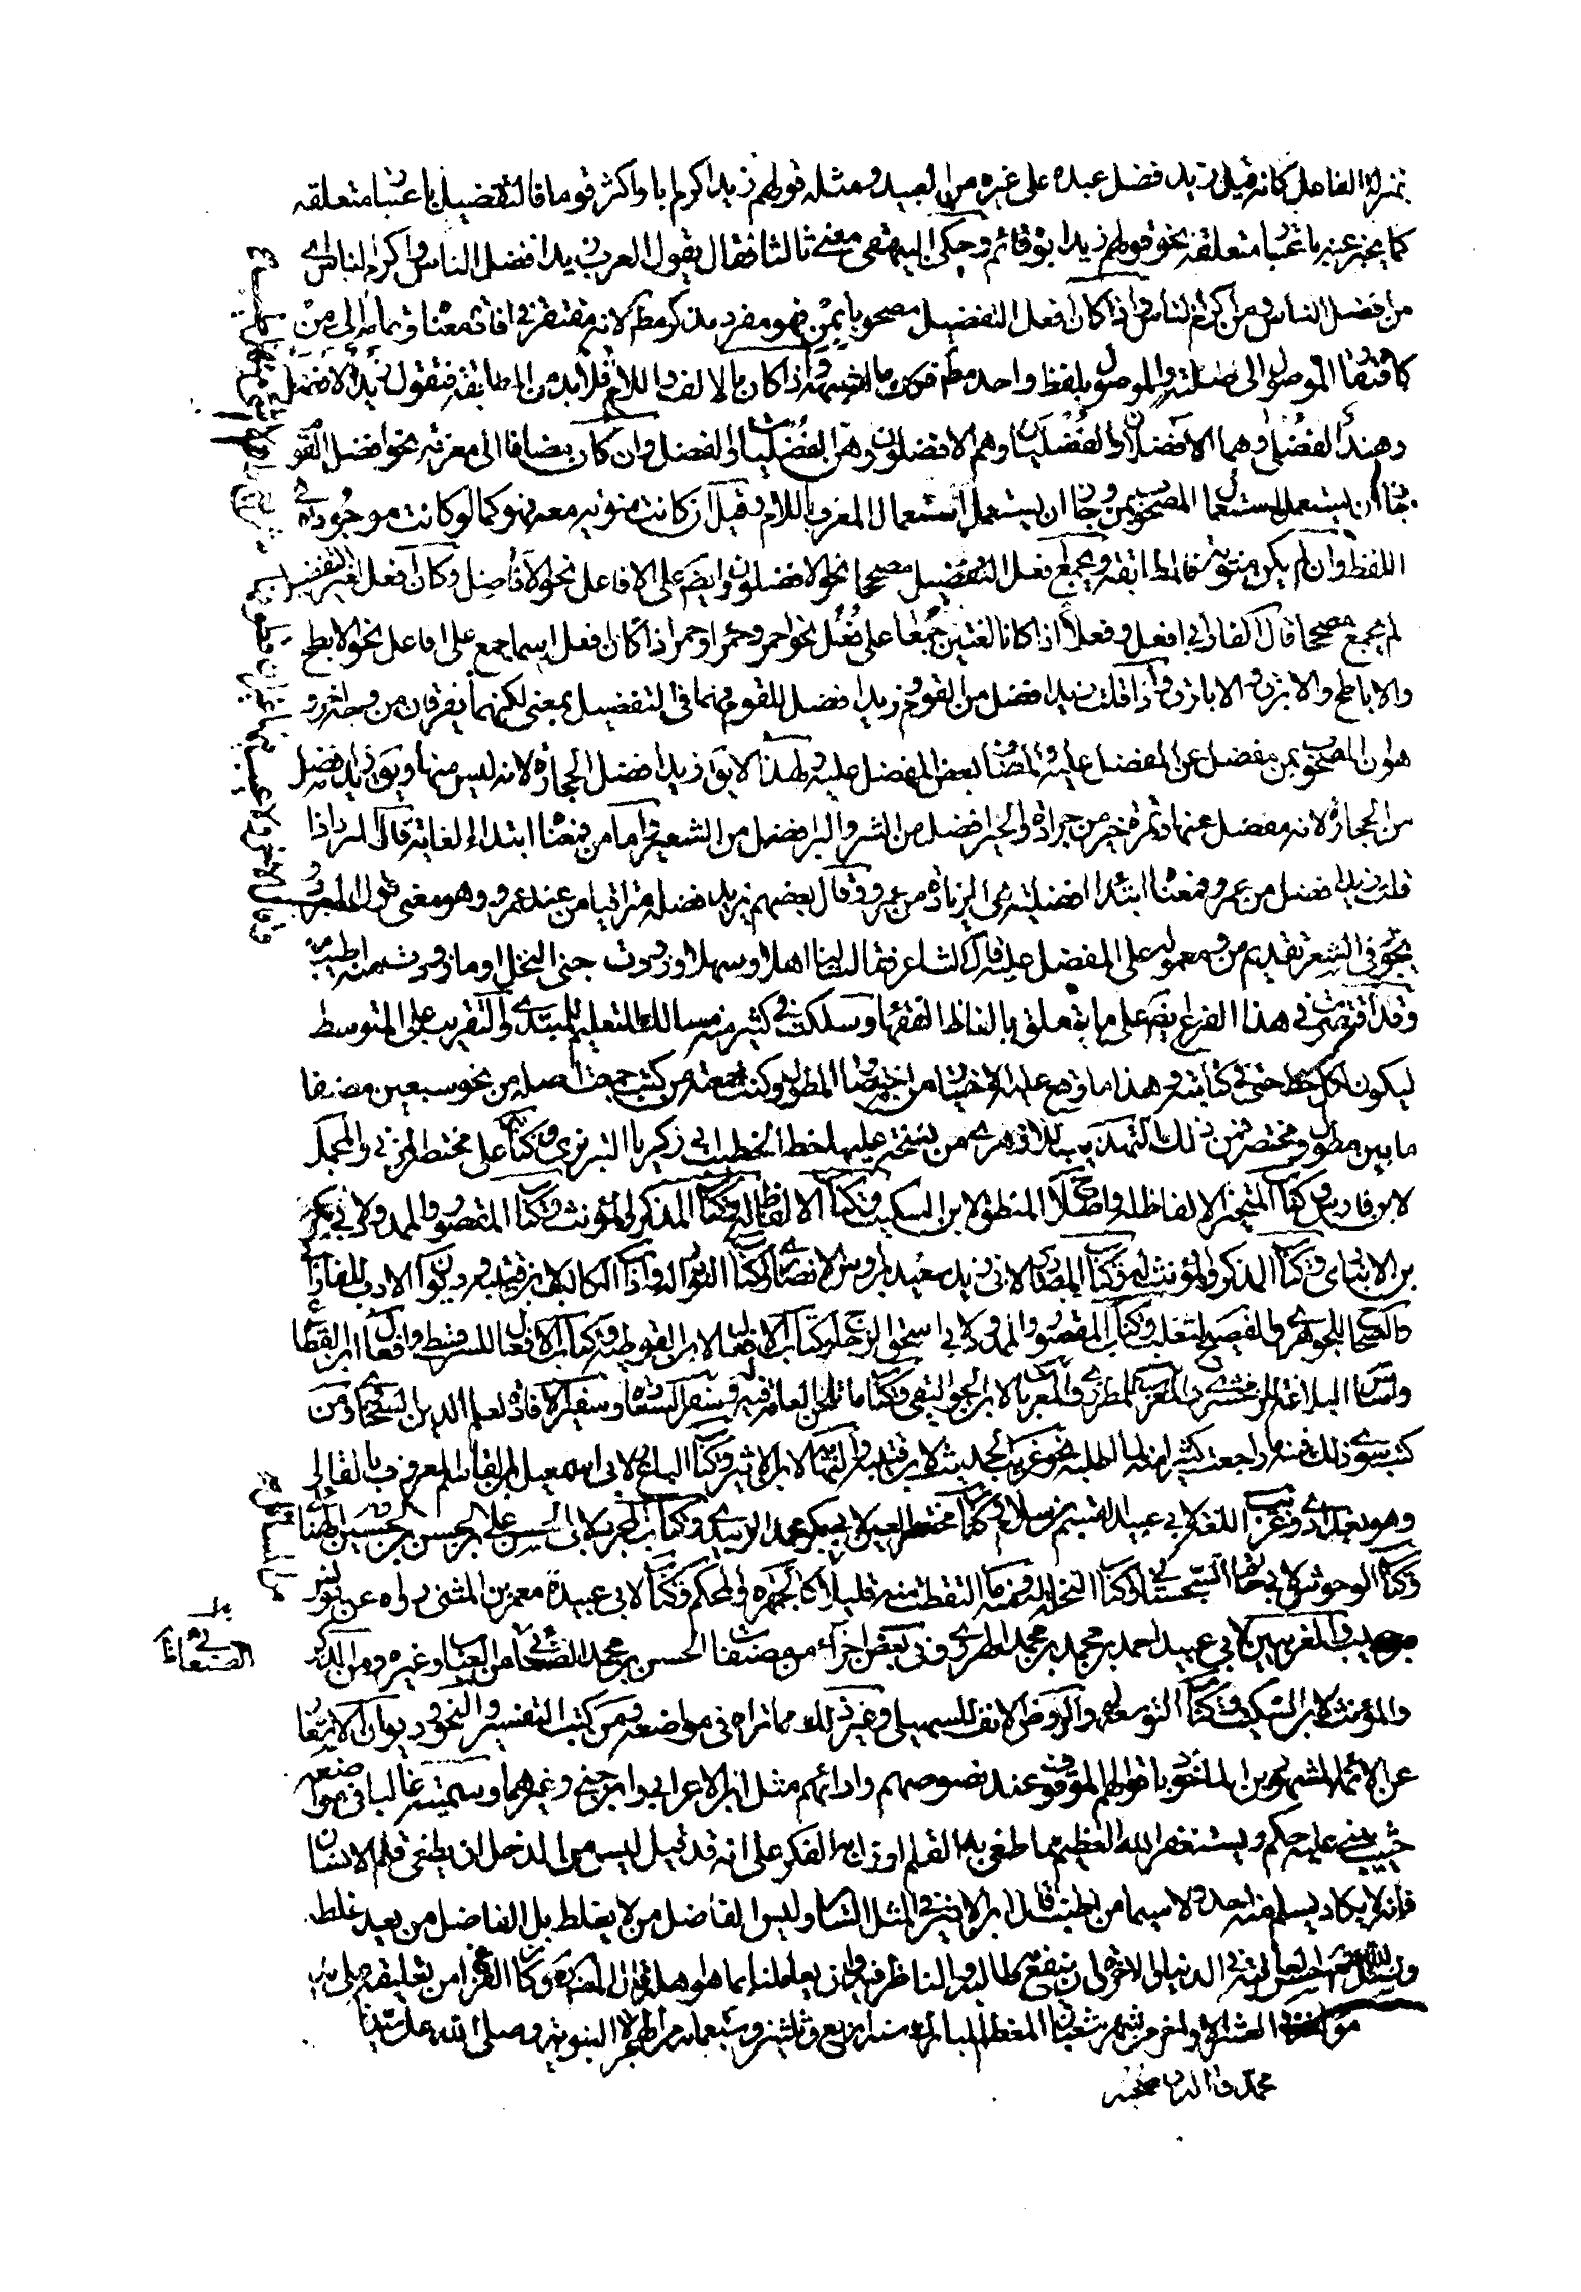 بمنزلة الفاعل كانه قيل زيد فضل عبده على غيره من العبيد ومثله قولهم زيد اكرم ابا واكثر قوما فالتفضيل باعتبار متعلقه
كما يخبر عنه باعتبار متعلقه نحو قولهم زيد ابوه قائم وحكى البيهقي معنى ثالثا فقال تقول العرب زيد افضل الناس واكرم الناس اي
من افضل الناس ومن اكرم الناس واذا كان افعل التفضيل مصحوبا بمن فهو مفرد مذكر مطلقا لانه مفتقر في افادة معناه وتمامه الى من
كافتقار الموصول الى صلته والموصول بلفظ واحد مطلقا فكذلك ما اشبهه واذا كان بالالف واللام فلا بد من المطابقة فتقول زيد الافضل
وهند الفضلى وهما الافضلان والفضليان وهم الافضلون وهن الفضليات والفضل وان كان مضافا الى معرفة نحو افضل القوم
جاز ان يستعمل استعمال المصحوب بمن وجاز ان يستعمل استعمال المعرف باللام وقيل ان كانت من منوية معه فهو كما لو كانت موجودة في
اللفظ وان لم يكن منوية فالمطابقة ويجمع افعل التفضيل مصححا نحو الافضلون وايضا على الافاعل نحو الافاضل وان كان افعل لغير التفضيل
لم يجمع مصححا قال الفارابي افعل وفعلاء اذا كانا نعتين جمعا على فعل نحو احمر وحمراء وحمر واذا كان افعل اسما جمع على افاعل نحو الابطح
والاباطح والابرق والابارق واذا قلت زيد افضل من القوم وزيد افضل القوم فهما في التفضيل بمعنى لكنهما يفترقان من وجه اخر و
هو ان المصحوب بمن مفضل عن المفضل عليه والمضاف بعض المفضل عليه ولهذا لا يقال زيد افضل الحجارة لانه ليس منها ويقال زيد افضل
من الحجارة لانه مفضل عنها وتمرة خير من جرادة والخير افضل من الشر والبر افضل من الشعير واما من فمعناها ابتداء الغاية قال المبرد اذا
قلت زيد افضل من عمرو فمعناه ابتداء افضليته في الزيادة من عمرو وقال بعضهم يزيد فضله مترقيا من عند عمرو وهو معنى قول المبرد
يجوز في الشعر تقديم من ومعمولها على المفضل عليه قال الشاعر فقالت لنا اهلا وسهلا وزودت جنى النحل او ما زودت منه اطيب
وقد اقتصرت في هذا الفرع ايضا على ما يتعلق بالفاظ الفقهاء وسلكت في كثير منه مسالك التعليم للمبتدي والتقريب على المتوسط
ليكون لكل حظ حتى في كتابته وهذا ما وقع عليه الاختيار من اختصار المطول وكنت جمعت اصله من نحو سبعين مصنفا
ما بين مطول ومختصر فمن ذلك التهذيب للازهري من نسخة عليها خط الخطيب ابي زكريا التبريزي وكتابه على مختصر المزني والمجمل
لابن فارس وكتاب متخير الالفاظ له واصلاح المنطق لابن السكيت وكتاب الالفاظ له وكتاب المذكر والمؤنث وكتاب المقصور والممدود لابي بكر
بن الانباري وكتاب المذكر والمؤنث له وكتاب المصادر لابي زيد سعيد بن اوس الانصاري وكتاب النوادر له وادب الكاتب لابن قتيبة وديوان الادب للفارابي
والصحاح للجوهري والفصيح لثعلب وكتاب المقصور والممدود لابي اسحق الزجاج وكتاب الافعال لابن القوطية وكتاب الافعال للسرقسطي وافعال ابن القطاع
واساس البلاغة للزمخشري والمغرب للمطرزي والمعرب لابن الجواليقي وكتاب ما تلحن العامة فيه له وسفر السعادة وسفير الافادة لعلم الدين السخاوي ومن
كتب سوى ذلك فمنه ما راجعت كثيرا منه لما اطلبه نحو غريب الحديث لابن قتيبة والنهاية لابن الاثير وكتاب البارع لابي اسمعيل بن القاسم المعروف بالقالي
وهو بغدادي وغريب اللغة لابي عبيد القسم بن سلام وكتاب مختصر العين لابي بكر محمد الزبيدي وكتاب المجرد لابي الحسن علي بن الحسن بن الحسين الهنائي
وكتاب الوحوش لابي حاتم السجستاني وكتاب النخلة له ومنه ما التقطت منه قليلا كالجمهرة والمحكم وكتاب لابي عبيدة معمر بن المثنى رواه عن يونس بن
حبيب والغريبين لابي عبيد احمد بن محمد بن محمد الهروي وفي بعض اجزاء من مصنفات الحسن بن محمد الصغاني من العباب وغيره ومن المذكر
والمؤنث لابن السكيت وكتاب التوسعة له والروض الانف للسهيلي وغير ذلك مما تراه في مواضعه ومن كتب التفسير والنحو ودواوين الاشعار
عن الائمة المشهورين الماخوذ باقوالهم الموقوف عند نصوصهم وارائهم مثل ابن الاعرابي وابن جني وغيرهما وسميته غالبا في مواضعه
حيث يبنى عليه حكم ونستغفر الله العظيم مما طغى به القلم او زل به الفكر على انه قد قيل ليس من الدخل ان يطغى قلم الانسان
فانه لا يكاد يسلم منه احد ولا سيما من اطنب قال ابن الاثير في المثل السائر وليس الفاضل من لا يغلط بل الفاضل من يعد غلطه
ونسئل الله حسن العاقبة في الدنيا والاخرة وان ينفع به طالبه والناظر فيه وان يعاملنا بما هو اهله وكان الفراغ من تعليقه على يد
مولفه في العشر الاواخر من شهر شعبان المعظم المبارك سنة اربع وثلثين وسبعمائة من الهجرة النبوية وصلى الله على سيدنا
محمد واله وصحبه